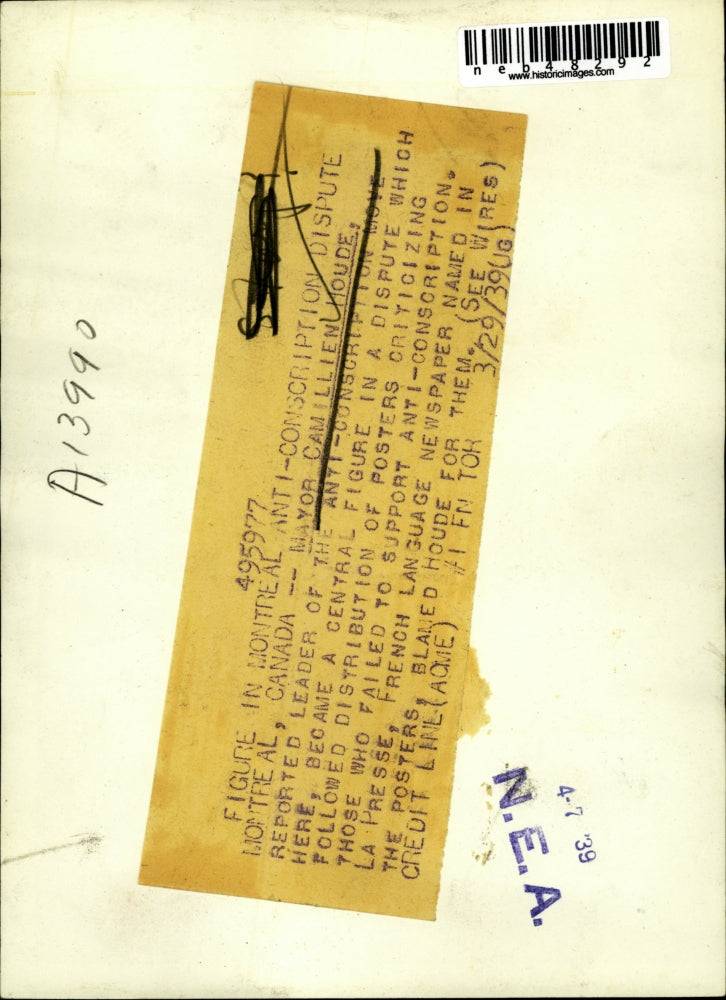 neb48292
www.historicimages.com
A13990
495977
FIGURE IN MONTREAL ANTI-CONSCRIPTION DISPUTE
MONTREAL, CANADA -- MAYOR CAMILLIEN HOUDE,
REPORTED LEADER OF THE ANTI-CONSCRIPTION MOVE
HERE, BECAME A CENTRAL FIGURE IN A DISPUTE WHICH
FOLLOWED DISTRIBUTION OF POSTERS CRITICIZING
THOSE WHO FAILED TO SUPPORT ANTI-CONSCRIPTION.
LA PRESSE, FRENCH LANGUAGE NEWSPAPER NAMED IN
THE POSTERS, BLAMED HOUDE FOR THEM. (SEE WIRES)
CREDIT LINE (ACME) #1 FN TOR 3/29/39(JG)
4-7 '39
N.E.A.